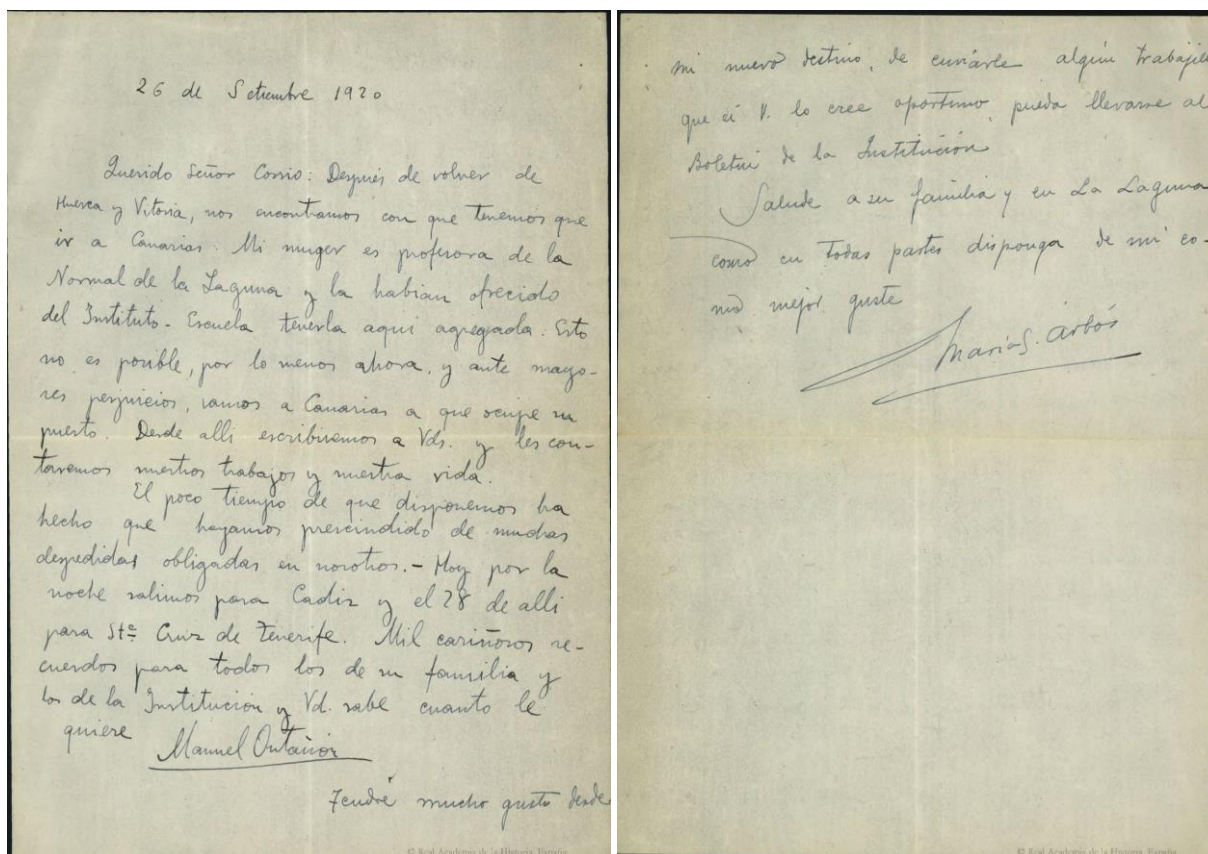 26 de Setiembre 1920
Querido Señor Cossio: Después de volver de
Huesca y Vitoria, nos encontramos con que tenemos que
ir a Canarias. Mi muger es profesora de la
Normal de la Laguna y la habian ofrecido
del Instituto-Escuela tenerla aqui agregada. Esto
no es posible, por lo menos ahora, y ante mayo-
res perjuicios, vamos a Canarias a que ocupe su
puesto. Desde alli escribiremos a Vds. y les con-
taremos nuestros trabajos y nuestra vida.
El poco tiempo de que disponemos ha
hecho que hayamos prescindido de muchas
despedidas obligadas en nosotros.- Hoy por la
noche salimos para Cadiz y el 28 de alli
para Sta Cruz de Tenerife. Mil cariñosos re-
cuerdos para todos los de su familia y
los de la Institucion y Vd. sabe cuanto le
quiere
Manuel Ontañón
Tendré mucho gusto desde
© Real Academia de la Historia. España
mi nuevo destino, de enviarle algún trabajillo
que si V. lo cree oportuno, pueda llevarse al
Boletín de la Institución
Salude a su familia y en La Laguna
como en todas partes disponga de mi co-
mo mejor guste
María S. Arbós
© Real Academia de la Historia. España